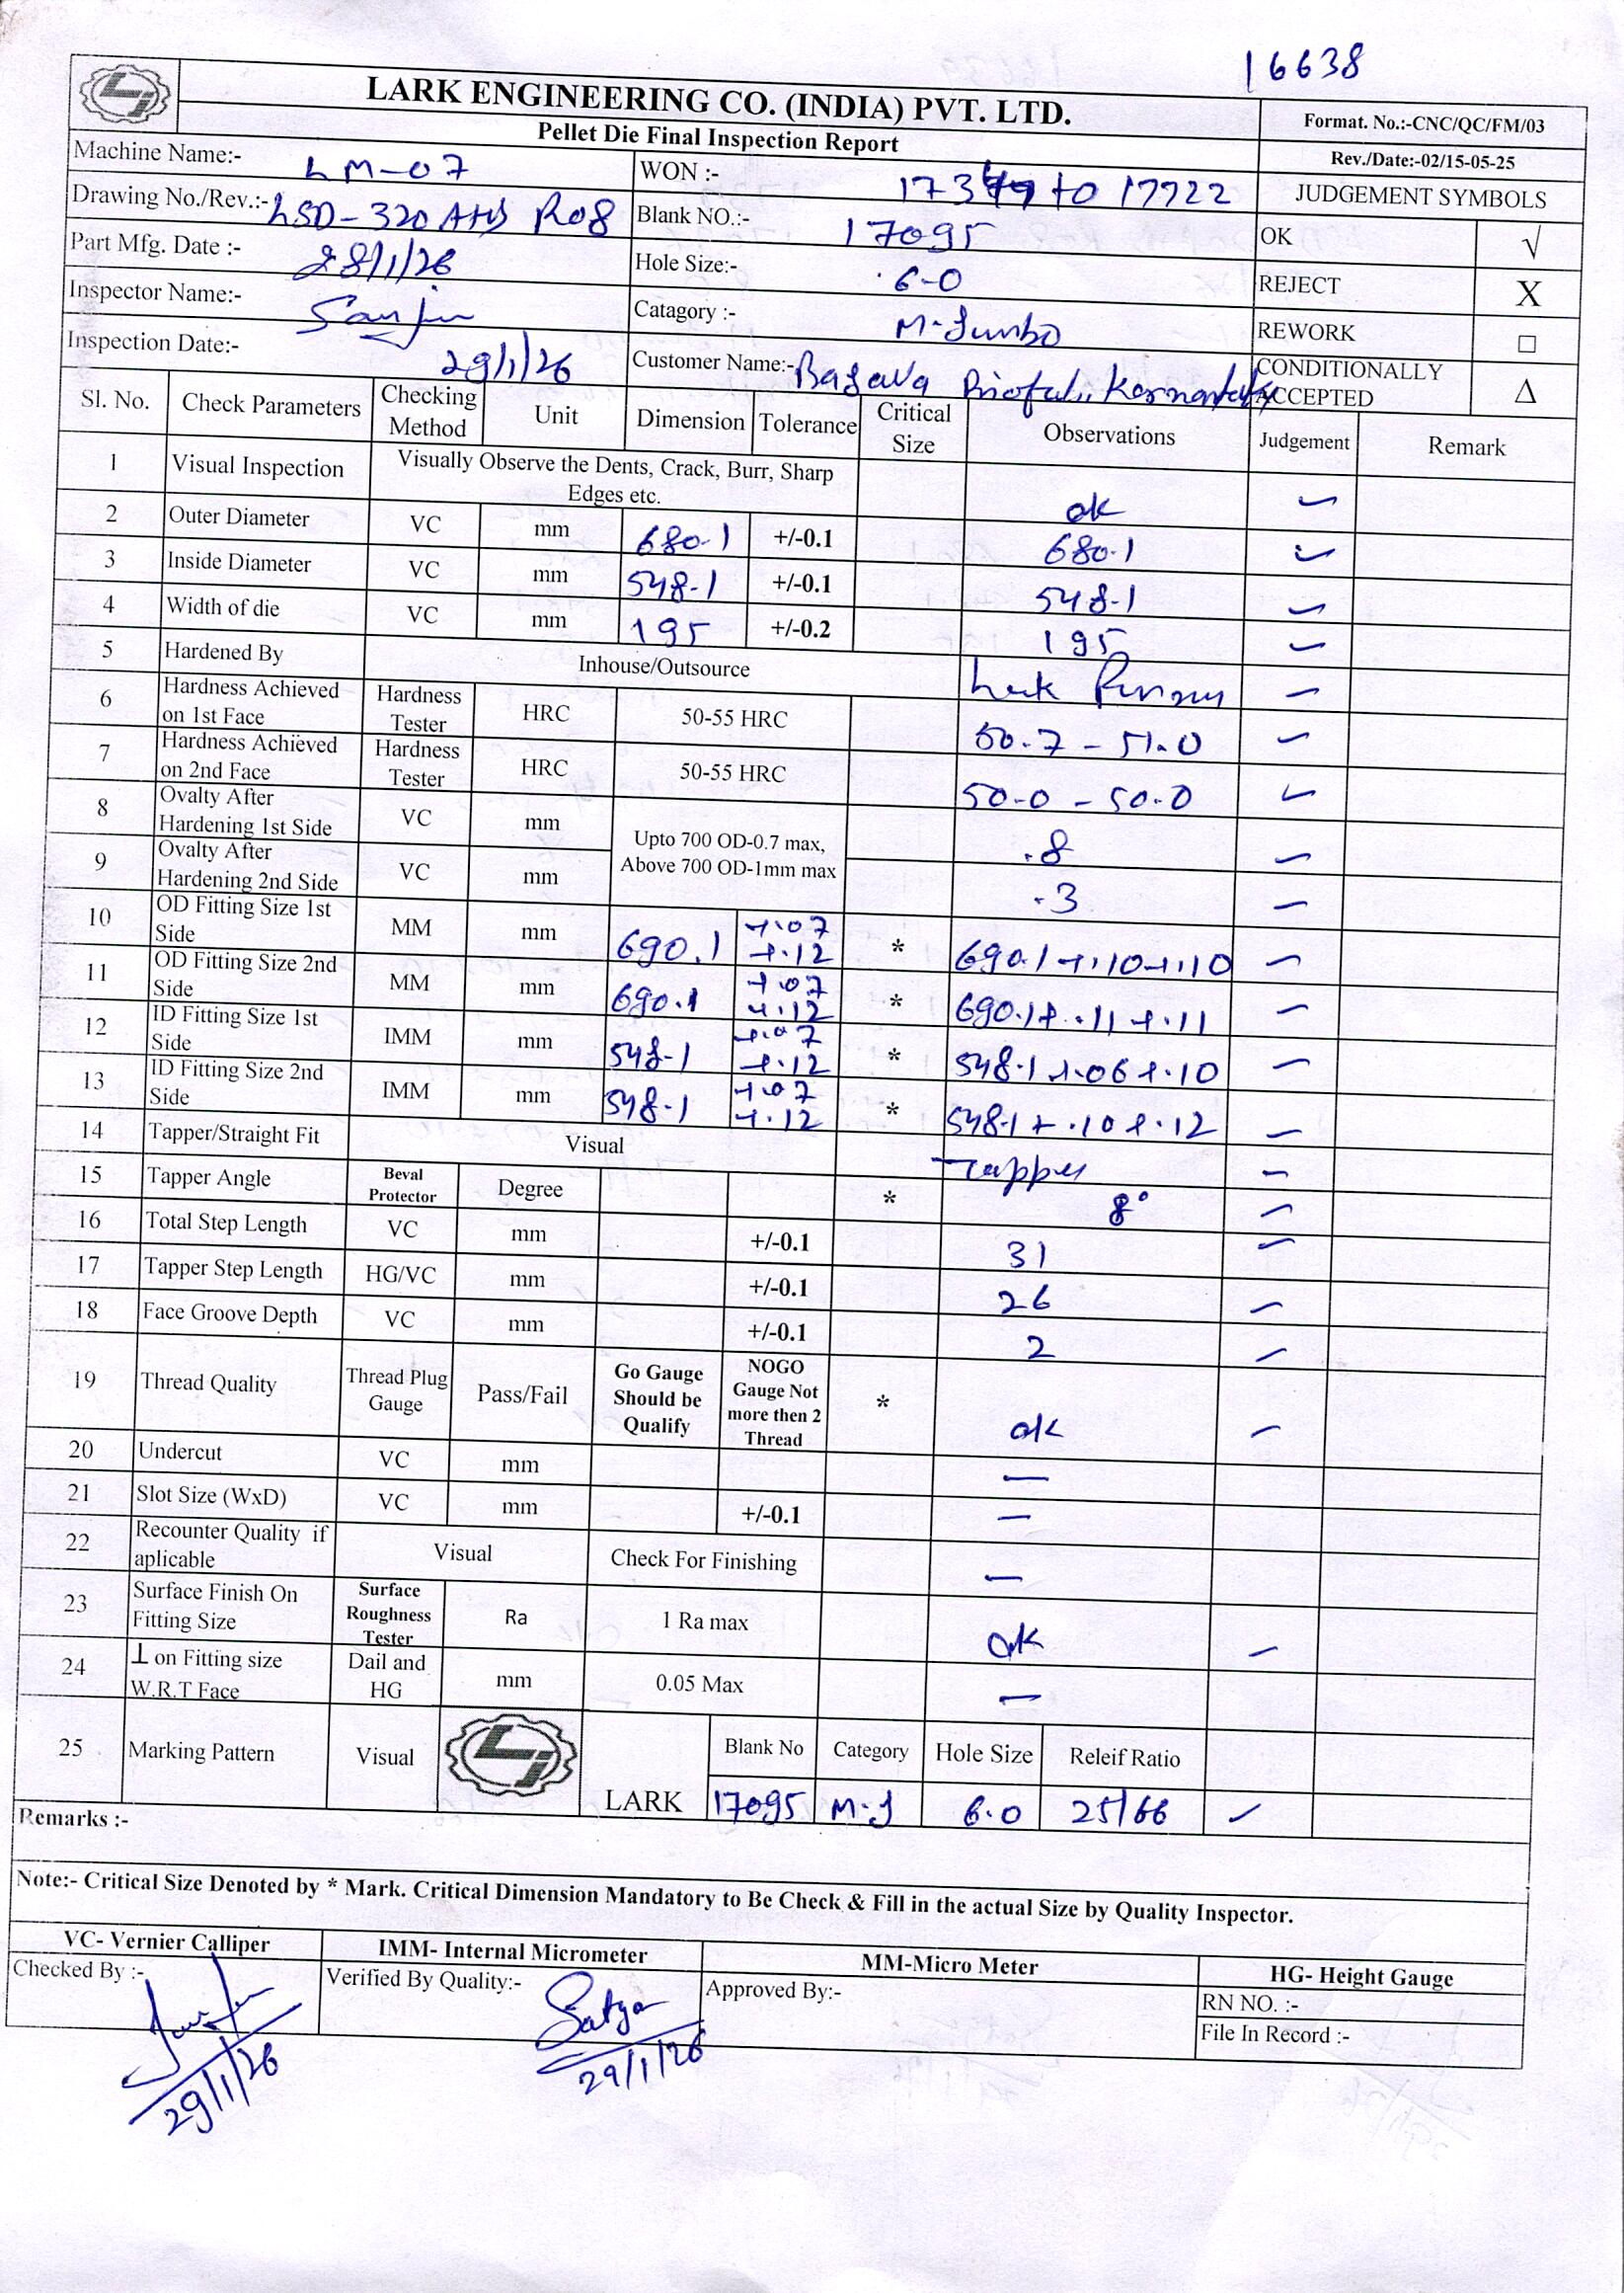 16638
LARK ENGINEERING CO. (INDIA) PVT. LTD.
Format. No.:-CNC/QC/FM/03
Pellet Die Final Inspection Report
Rev./Date:-02/15-05-25
Machine Name:- LM-07 WON :- to 17722 JUDGEMENT SYMBOLS
Drawing No./Rev.:- LSD-320 AHS R08 Blank NO.:- 17095 OK √
Part Mfg. Date :- 28/1/26 Hole Size:- 6-0 REJECT X
Inspector Name:- Sanjiv Catagory :- M-Jumbo REWORK □
Inspection Date:- 29/1/26 Customer Name:- CONDITIONALLY ACCEPTED Δ
Sl. No. Check Parameters Checking Method Unit Dimension Tolerance Critical Size Observations Judgement Remark
1 Visual Inspection Visually Observe the Dents, Crack, Burr, Sharp Edges etc. ok
2 Outer Diameter VC mm 680.1 +/-0.1 680.1
3 Inside Diameter VC mm 548-1 +/-0.1 548-1
4 Width of die VC mm 195 +/-0.2 195
5 Hardened By Inhouse/Outsource
6 Hardness Achieved on 1st Face Hardness Tester HRC 50-55 HRC 50.7 - 51.0
7 Hardness Achieved on 2nd Face Hardness Tester HRC 50-55 HRC 50.0 - 50.0
8 Ovalty After Hardening 1st Side VC mm Upto 700 OD-0.7 max, Above 700 OD-1mm max .8
9 Ovalty After Hardening 2nd Side VC mm .3
10 OD Fitting Size 1st Side MM mm 690.1 +.07 +.12 * 690.1 +.10 +.10
11 OD Fitting Size 2nd Side MM mm 690.1 +.07 +.12 * 690.1 + .11 +.11
12 ID Fitting Size 1st Side IMM mm 548-1 +.07 +.12 * 548.1 +.06 +.10
13 ID Fitting Size 2nd Side IMM mm 548-1 +.07 +.12 * 548.1 + .10 +.12
14 Tapper/Straight Fit Visual Tapper
15 Tapper Angle Beval Protector Degree * 8°
16 Total Step Length VC mm +/-0.1 31
17 Tapper Step Length HG/VC mm +/-0.1 26
18 Face Groove Depth VC mm +/-0.1 2
19 Thread Quality Thread Plug Gauge Pass/Fail Go Gauge Should be Qualify NOGO Gauge Not more then 2 Thread * ok
20 Undercut VC mm —
21 Slot Size (WxD) VC mm +/-0.1 —
22 Recounter Quality if aplicable Visual Check For Finishing —
23 Surface Finish On Fitting Size Surface Roughness Tester Ra 1 Ra max ok
24 ⊥ on Fitting size W.R.T Face Dail and HG mm 0.05 Max —
25 Marking Pattern Visual LARK Blank No Category Hole Size Releif Ratio
17095 M-J 6.0 25/66
Remarks :-
Note:- Critical Size Denoted by * Mark. Critical Dimension Mandatory to Be Check & Fill in the actual Size by Quality Inspector.
VC- Vernier Calliper IMM- Internal Micrometer MM-Micro Meter HG- Height Gauge
Checked By :- Verified By Quality:- Satya Approved By:- RN NO. :-
File In Record :-
29/1/26 29/1/26